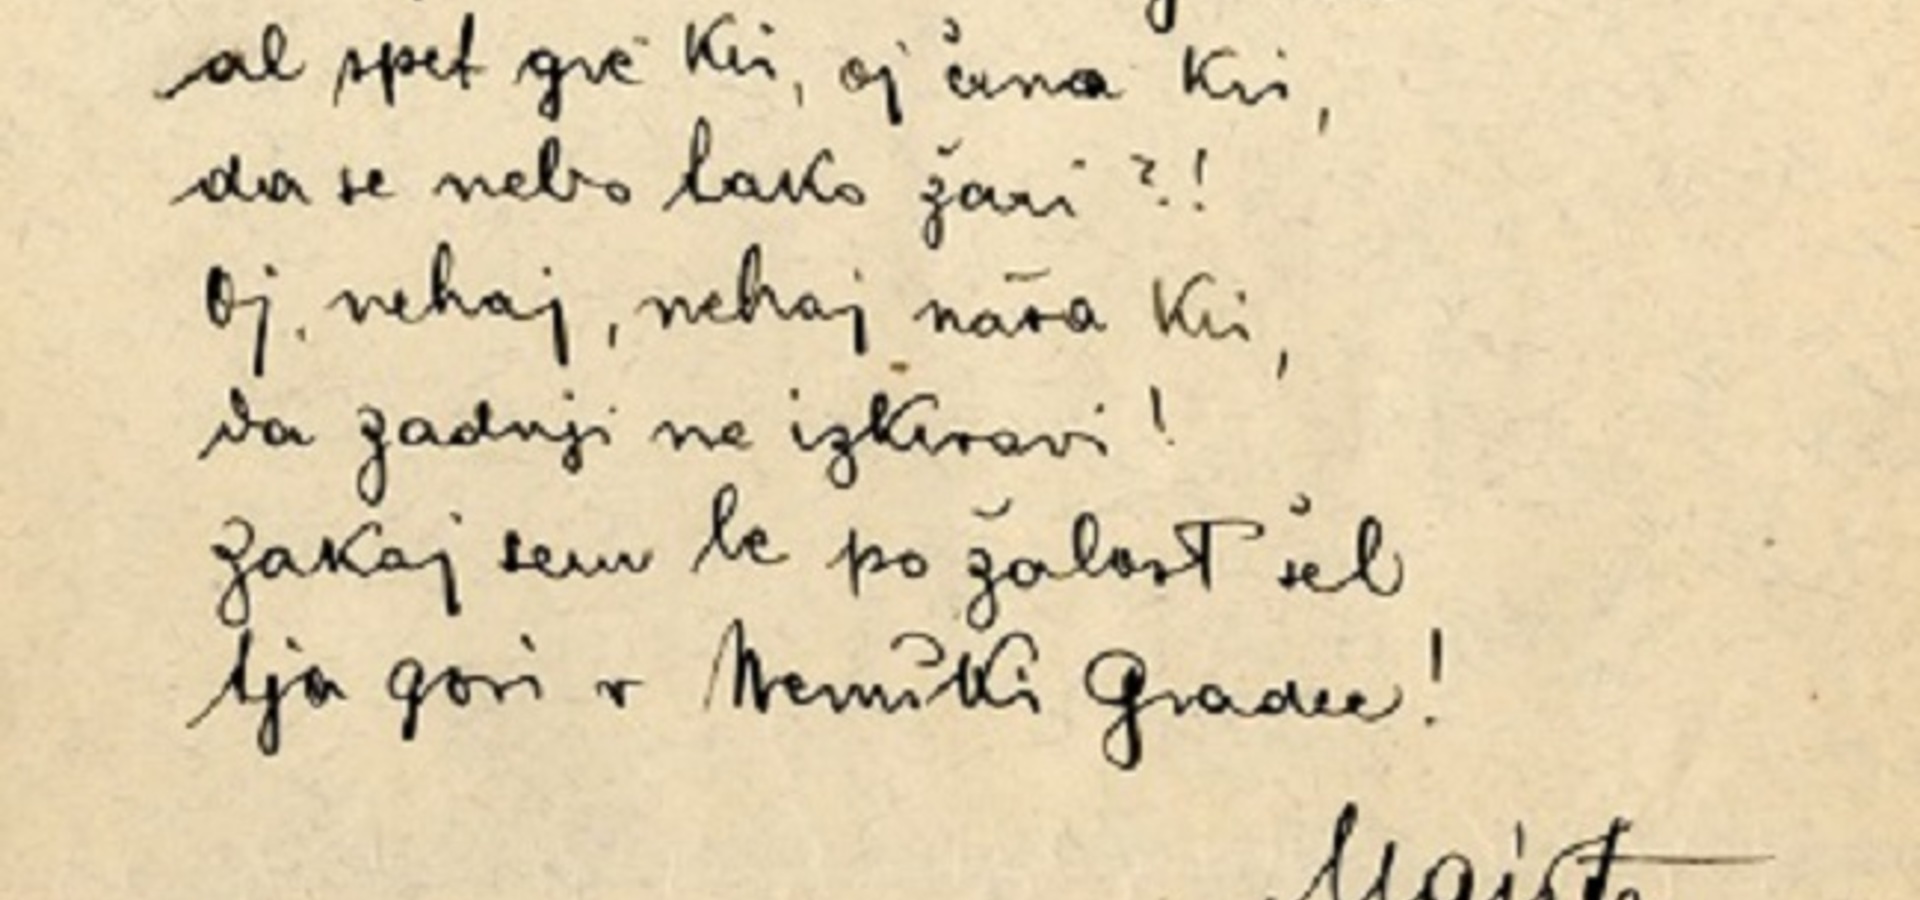 al spet gre kri, oj črna kri,
da se nebo tako žari?!
Oj, nehaj, nehaj naša kri,
da zadnji ne izkrvavi!
Zakaj sem le po žalost šel
tja gori v Nemški Gradec!
Maister